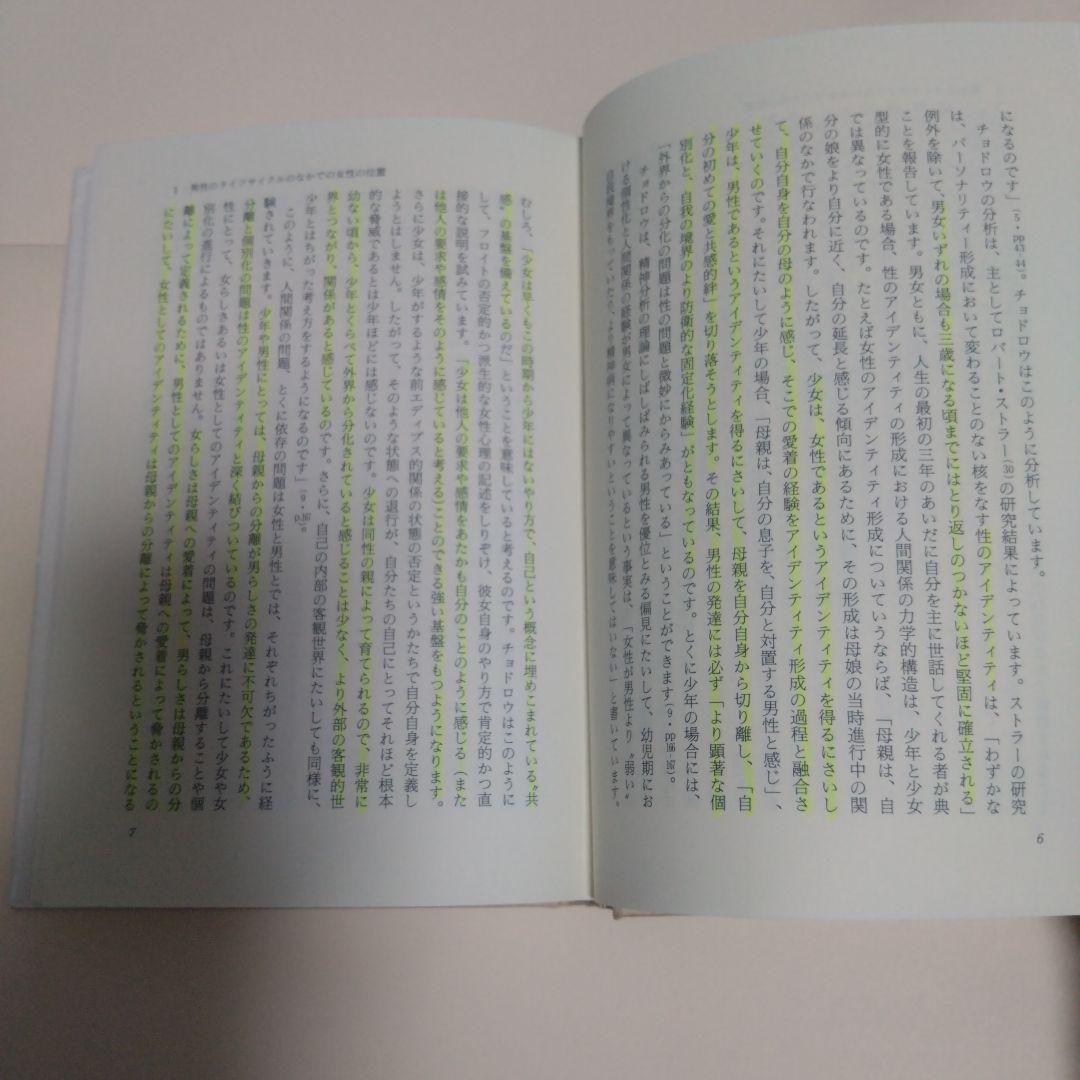 になるのです」(5・pp 43-44)。チョドロウはこのように分析しています。
チョドロウの分析は、主としてロバート・ストラー(30)の研究結果によっています。ストラーの研究
は、パーソナリティー形成において変わることのない核をなす性のアイデンティティは、「わずかな
例外を除いて、男女いずれの場合も三歳になる頃までにはとり返しのつかないほど堅固に確立される」
ことを報告しています。男女ともに、人生の最初の三年のあいだに自分を主に世話してくれる者が典
型的に女性である場合、性のアイデンティティの形成における人間関係の力学的構造は、少年と少女
では異なっているのです。たとえば女性のアイデンティティ形成についていうならば、「母親は、自
分の娘をより自分に近く、自分の延長と感じる傾向にあるために、その形成は母娘の当時進行中の関
係のなかで行なわれます。したがって、少女は、女性であるというアイデンティティを得るにさいし
て、自分自身を自分の母のように感じ、そこでの愛着の経験をアイデンティティ形成の過程と融合さ
せていくのです。それにたいして少年の場合、「母親は、自分の息子を、自分と対置する男性と感じ」、
少年は、男性であるというアイデンティティを得るにさいして、母親を自分自身から切り離し、「自
分の初めての愛と共感的絆」を切り落そうとします。その結果、男性の発達には必ず「より顕著な個
別化と、自我の境界のより防衛的な固定化経験」がともなっているのです。とくに少年の場合には、
「外界からの分化の問題は性の問題と微妙にからみあっている」ということができます(9・pp 166-167)。
チョドロウは、精神分析の理論にしばしばみられる男性を優位とみる偏見にたいして、幼児期にお
ける個性化と人間関係の経験が男女によって異なっているという事実は、「女性が男性より〝弱い〟
自我境界をもっていたり、より精神病になりやすいということを意味してはいない」と書いています。
6
むしろ、「少女は早くもこの時期から少年にはないやり方で、自己という概念に埋めこまれている〝共
感〟の基盤を備えているのだ」ということを意味していると考えるのです。チョドロウはこのように
して、フロイトの否定的かつ派生的な女性心理の記述をしりぞけ、彼女自身のやり方で肯定的かつ直
接的な説明を試みています。「少女は他人の要求や感情をあたかも自分のことのように感じる(また
は他人の要求や感情をそのように感じていると考える)ことのできる強い基盤をもつようになります。
さらに少女は、少年がするような前エディプス的関係の状態の否定というかたちで自分自身を定義し
ようとはしません。したがって、そのような状態への退行が、自分たちの自己にとってそれほど根本
的な脅威であるとは少年ほどには感じないのです。少女は同性の親によって育てられるので、非常に
幼ない頃から、少年とくらべて外界から分化されていると感じることは少なく、より外部の客観的世
界とつながり、関係があると感じているのです。さらに、自己の内部の客観世界にたいしても同様に、
少年とはちがった考え方をするようになるのです」(9・p. 167)。
このように、人間関係の問題、とくに依存の問題は女性と男性とでは、それぞれちがったふうに経
験されていきます。少年や男性にとっては、母親からの分離が男らしさの発達に不可欠であるため、
分離と個別化の問題は性のアイデンティティと深く結びついているのです。これにたいして少女や女
性にとって、女らしさあるいは女性としてのアイデンティティの問題は、母親から分離することや個
別化の進行によるものではありません。女らしさは母親への愛着によって、男らしさは母親からの分
離によって定義されるために、男性としてのアイデンティティは母親への愛着によって脅かされるの
にたいして、女性としてのアイデンティティは母親からの分離によって脅かされるということになる
1 男性のライフサイクルのなかでの女性の位置
7